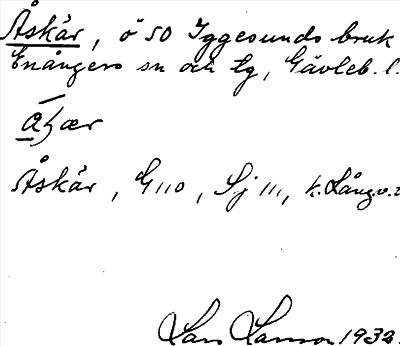 Åskär, ö 50 Iggesunds bruk
Enångers sn och tg, Gävleb. l.
Åskär, G 110, Sj 111, k. Långv.
Lars Larsson 1932.